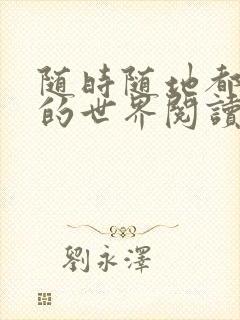 随時随地都
的世界閱讀
劉永澤